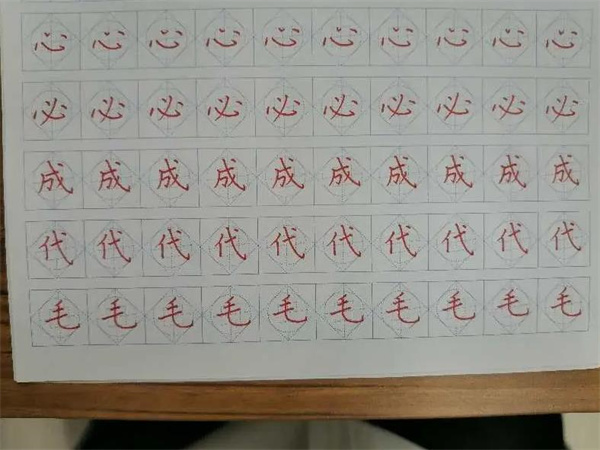 心心心心心心心心心心
必必必必必必必必必必
成成成成成成成成成成
代代代代代代代代代代
毛毛毛毛毛毛毛毛毛毛